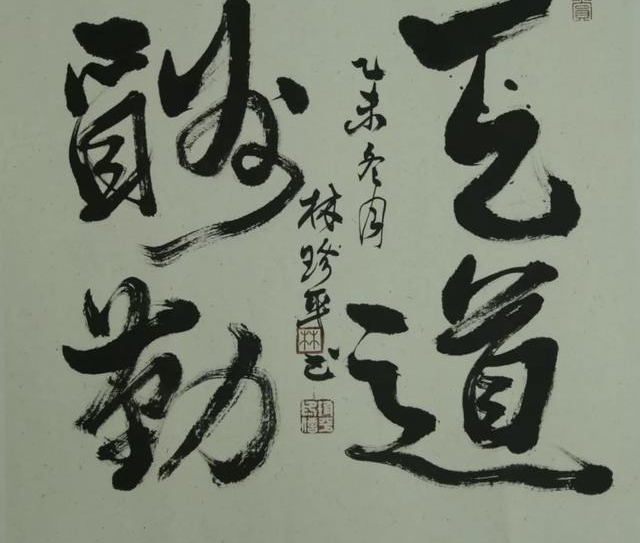 天道
酬勤
乙未冬月
林珍平书
林